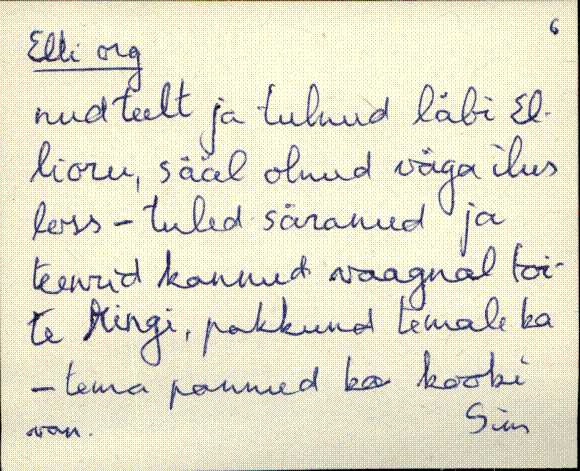 6
Elli org
nud teelt ja tulnud läbi El-
lioru, sääl olnud väga ilus
loss – tuled säranud ja
teenrid kannud vaagnal toi-
te ringi, pakkund temale ka
– tema pannud ka kooki
van. Siin